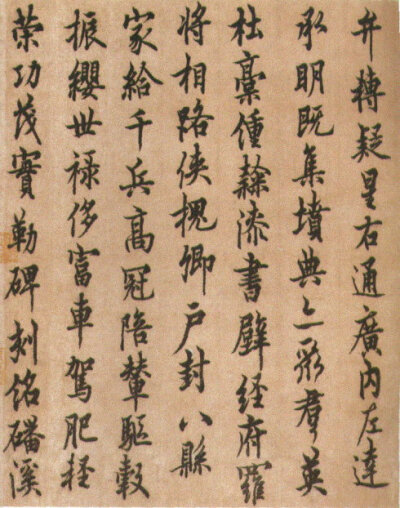 弁轉疑星右通廣内左達
承明既集墳典亦聚羣英
杜稾鍾隸漆書壁經府羅
將相路俠槐卿戶封八縣
家給千兵高冠陪輦驅轂
振纓世祿侈富車駕肥輕
策功茂實勒碑刻銘磻溪